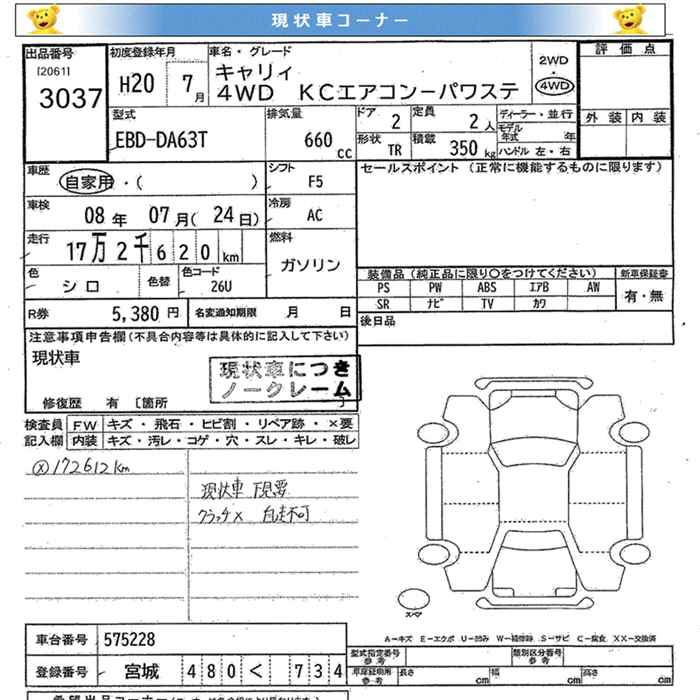 現状車コーナー
出品番号
[2061]
3037
初度登録年月
H20 7月
車名・グレード
キャリィ
4WD KCエアコンーパワステ
2WD
・
4WD
評価点
外装 内装
型式
EBD-DA63T
排気量
660 cc
ドア
2
定員
2人
形状
TR
積載
350 kg
ディーラー・並行
モデル年式 年
ハンドル 左・右
車歴
自家用・( )
シフト
F5
セールスポイント(正常に機能するものに限ります)
車検
08年 07月(24日)
冷房
AC
走行
17万2千620km
燃料
ガソリン
色
シロ
色替
色コード
26U
装備品(純正品に限り○をつけてください)
新車保証書
PS PW ABS エアB AW
有・無
SR ナビ TV カワ
R券 5,380円
名変通知期限 月 日
後日品
注意事項申告欄(不具合内容等は具体的に記入して下さい)
現状車
現状車につき
ノークレーム
修復歴 有 [箇所 ]
検査員記入欄
FW キズ・飛石・ヒビ割・リペア跡・×要
内装 キズ・汚レ・コゲ・穴・スレ・キレ・破レ
ⓧ172612km
現状車 下見要
クラッチ× 自走不可
スペア
A-キズ E-エクボ U-凹み W-補修跡 S-サビ C-腐食 XX-交換済
車台番号 575228
型式指定番号 参考
類別区分番号 参考
登録番号 宮城 480 く 734
車庫証明用 参考
長さ cm
幅 cm
高さ cm